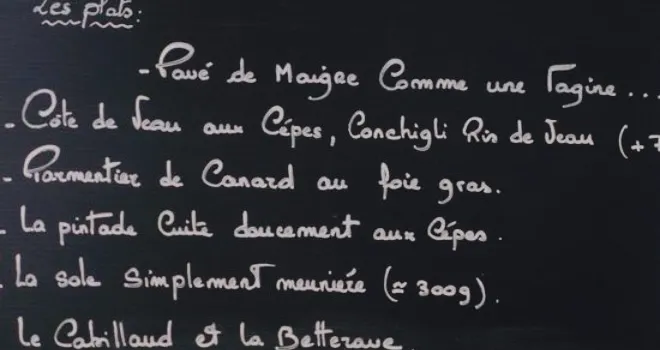 Les plats:
- Pavé de Maigre Comme une Tagine...
- Côte de Veau aux Cépes, Conchigli Ris de Veau (+7
- Parmentier de Canard au foie gras.
- La pintade Cuite doucement aux Cépes.
La sole Simplement meunière (≈ 300g).
Le Cabillaud et la Betterave